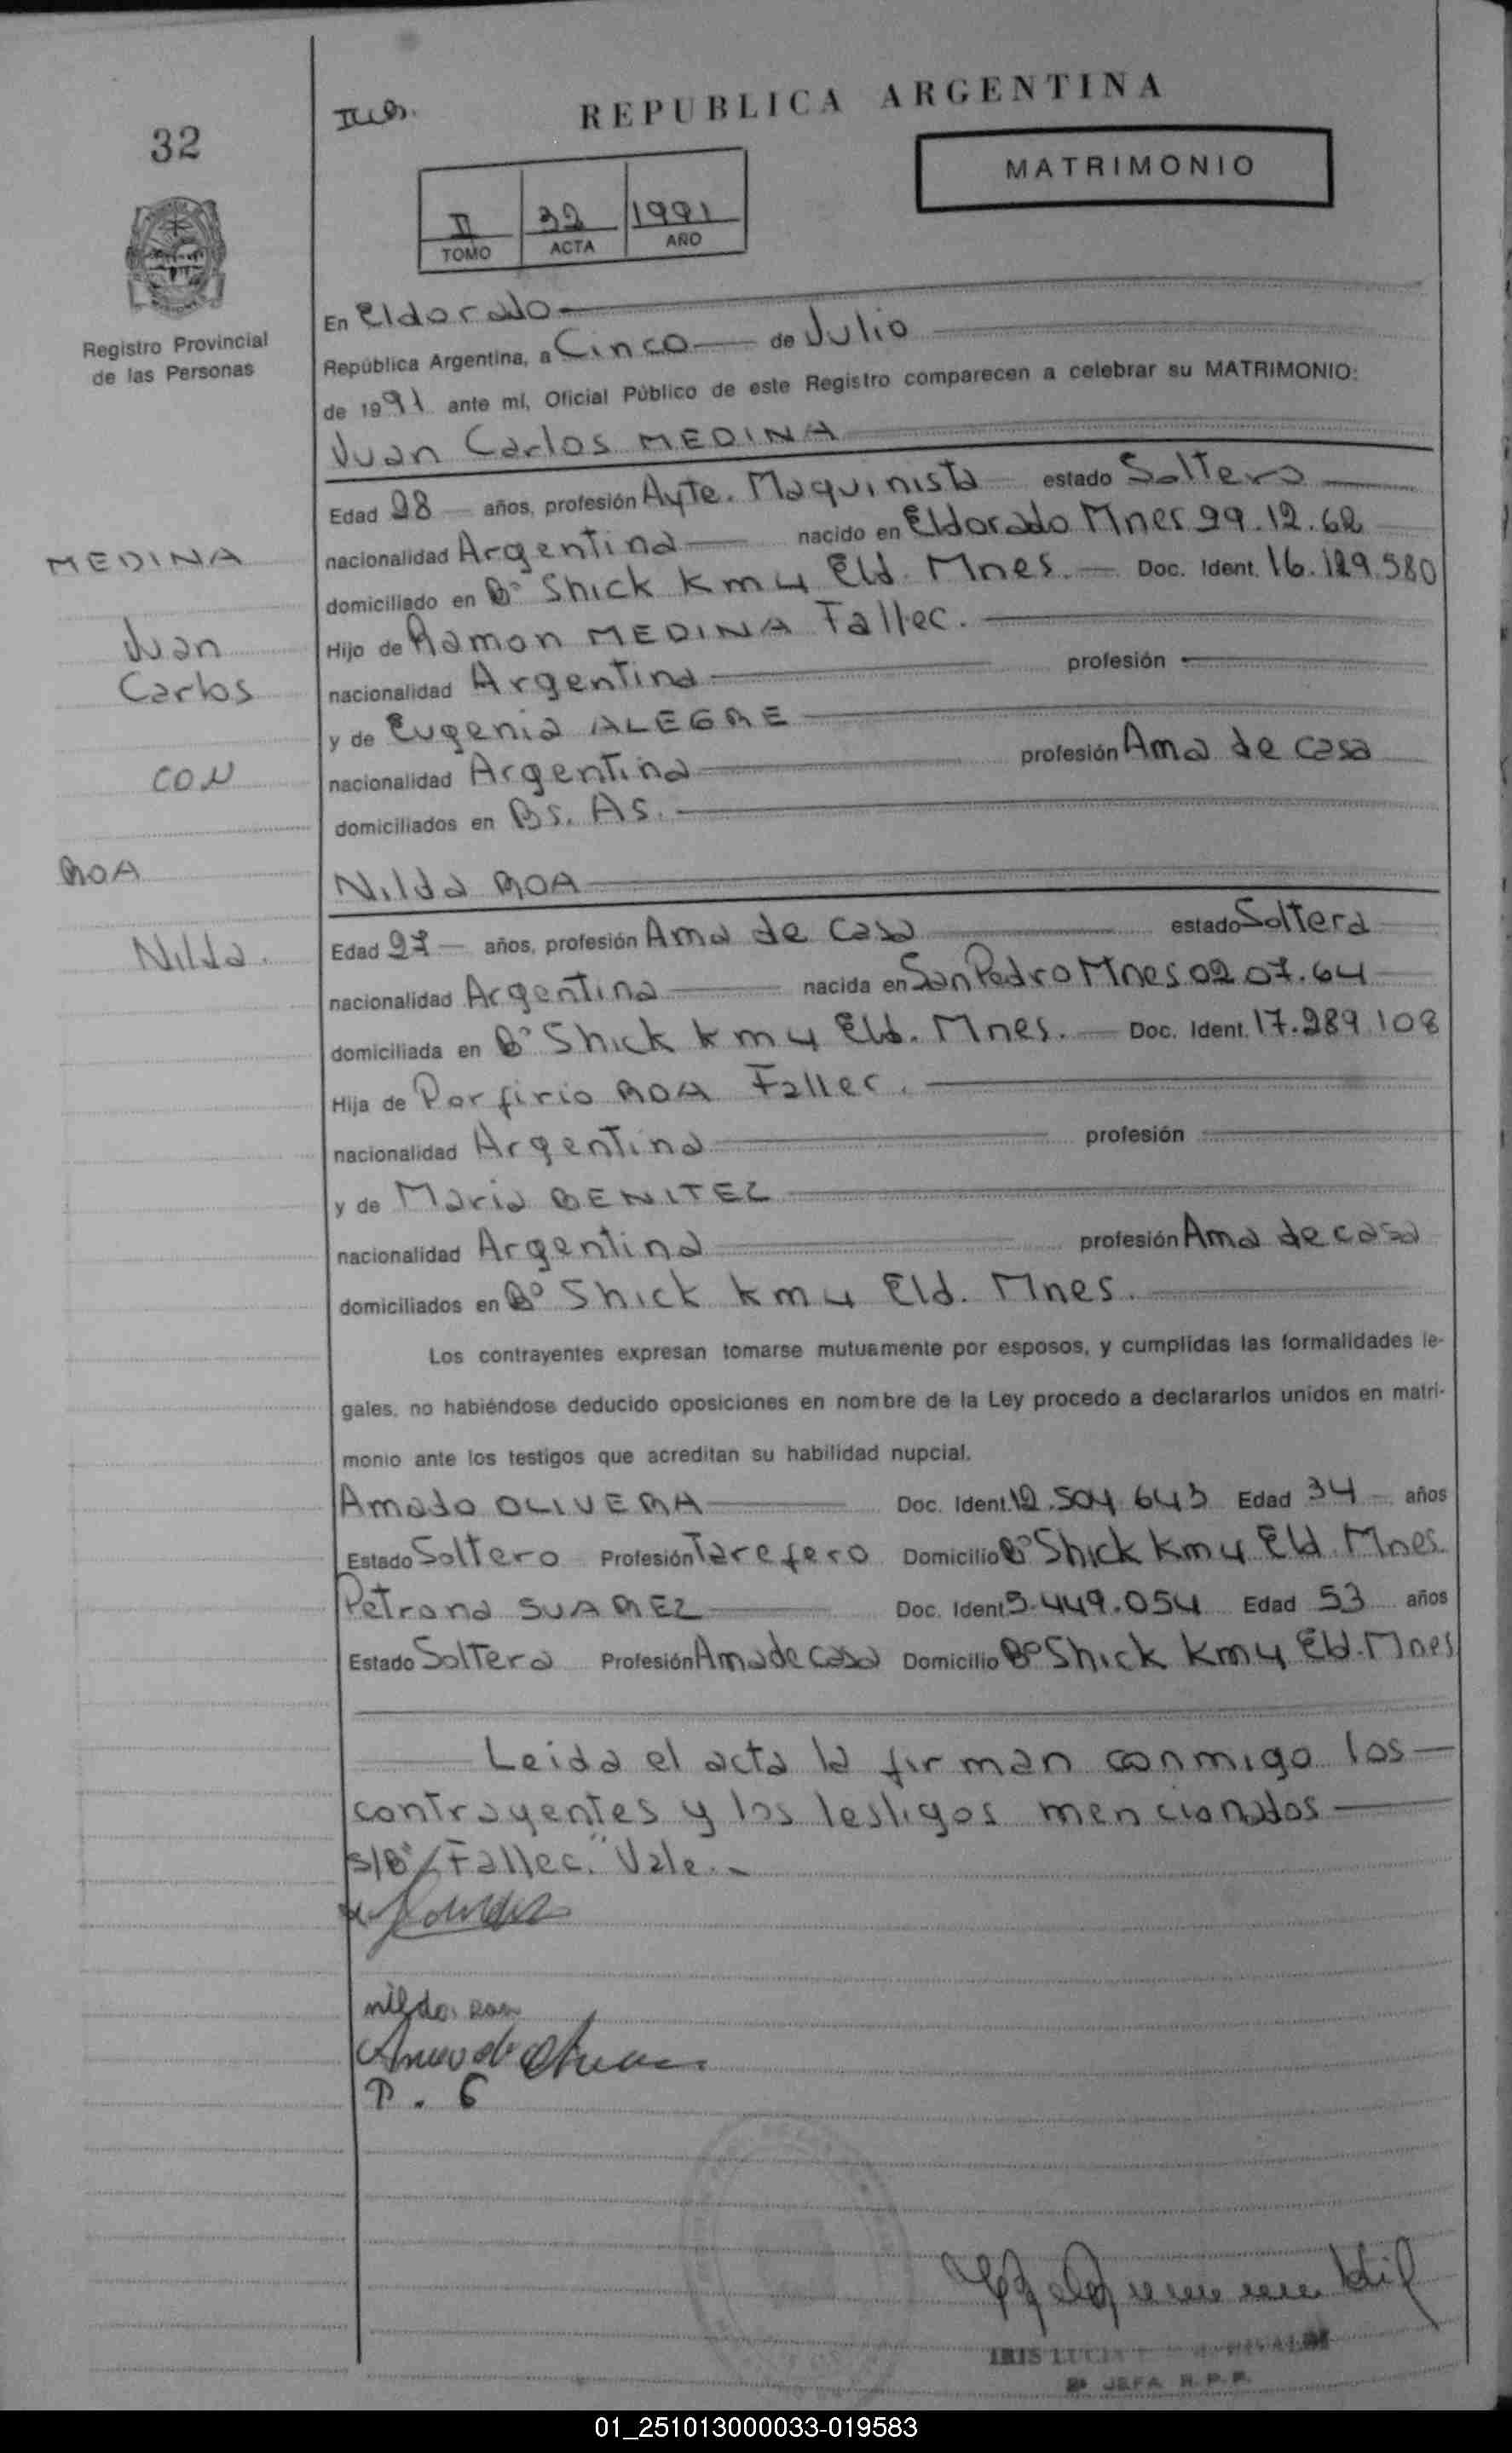 32
REPUBLICA ARGENTINA
MATRIMONIO
II 32 1991
TOMO ACTA AÑO
Registro Provincial
de las Personas
En Eldorado
República Argentina, a Cinco de Julio
de 1991 ante mí, Oficial Público de este Registro comparecen a celebrar su MATRIMONIO:
Juan Carlos MEDINA
Edad 28 años, profesión Ayte. Maquinista estado Soltero
MEDINA
nacionalidad Argentina nacido en Eldorado Mnes 29.12.62
domiciliado en Bº Shick Km 4 Eld. Mnes. Doc. Ident. 16.129.580
Juan
Hijo de Ramon MEDINA Fallec.
Carlos
nacionalidad Argentina profesión
y de Eugenia ALEGRE
CON
nacionalidad Argentina profesión Ama de casa
domiciliados en Bs. As.
ROA
Nilda ROA
Nilda.
Edad 27 años, profesión Ama de casa estado Soltera
nacionalidad Argentina nacida en San Pedro Mnes 02 07.64
domiciliada en Bº Shick Km 4 Eld. Mnes. Doc. Ident. 17.289.108
Hija de Porfirio ROA Fallec.
nacionalidad Argentina profesión
y de Maria BENITEZ
nacionalidad Argentina profesión Ama de casa
domiciliados en Bº Shick Km 4 Eld. Mnes.
Los contrayentes expresan tomarse mutuamente por esposos, y cumplidas las formalidades le-
gales, no habiéndose deducido oposiciones en nombre de la Ley procedo a declararlos unidos en matri-
monio ante los testigos que acreditan su habilidad nupcial.
Amado OLIVERA Doc. Ident. 12.504.643 Edad 34 años
Estado Soltero Profesión Tarefero Domicilio Bº Shick Km 4 Eld. Mnes.
Petrona SUAREZ Doc. Ident 5.449.054 Edad 53 años
Estado Soltera Profesión Ama de casa Domicilio Bº Shick Km 4 Eld. Mnes
Leida el acta la firman conmigo los
contrayentes y los testigos mencionados
S/Bº "Fallec." Vale.
nilda roa
P. S
IRIS LUCIA
JEFA R.P.P.
01_251013000033-019583